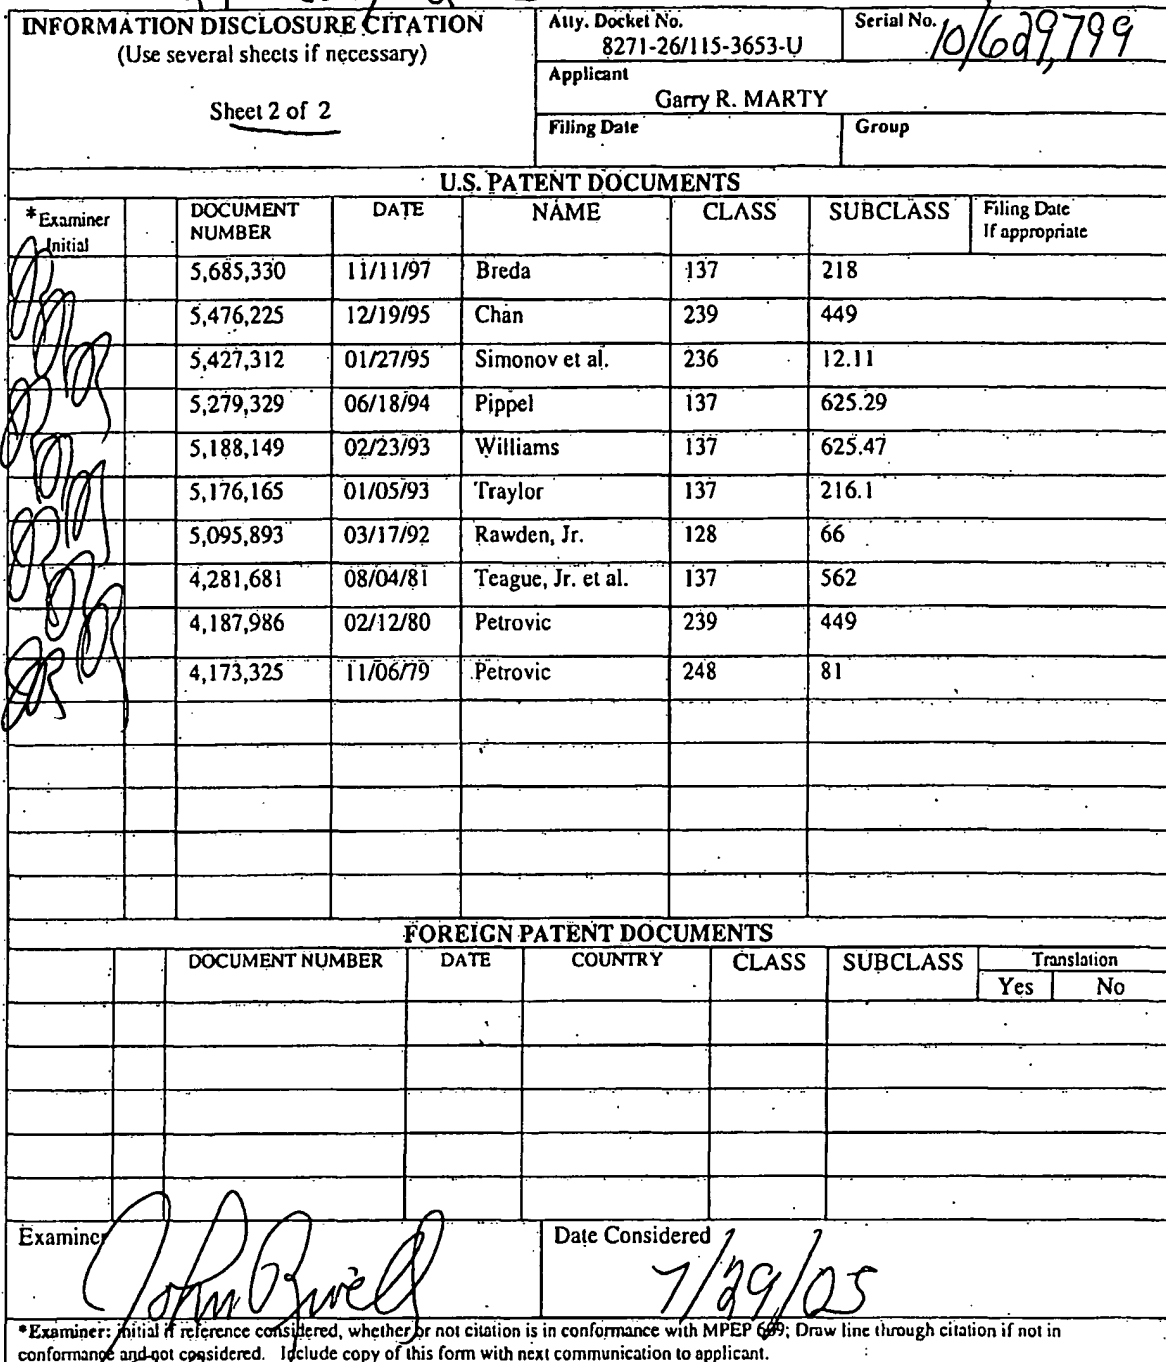 INFORMATION DISCLOSURE CITATION
(Use several sheets if necessary)
Sheet 2 of 2
Atty. Docket No.
8271-26/115-3653-U
Serial No. 10/629,799
Applicant
Garry R. MARTY
Filing Date
Group
U.S. PATENT DOCUMENTS
*Examiner Initial DOCUMENT NUMBER DATE NAME CLASS SUBCLASS Filing Date If appropriate
5,685,330 11/11/97 Breda 137 218
5,476,225 12/19/95 Chan 239 449
5,427,312 01/27/95 Simonov et al. 236 12.11
5,279,329 06/18/94 Pippel 137 625.29
5,188,149 02/23/93 Williams 137 625.47
5,176,165 01/05/93 Traylor 137 216.1
5,095,893 03/17/92 Rawden, Jr. 128 66
4,281,681 08/04/81 Teague, Jr. et al. 137 562
4,187,986 02/12/80 Petrovic 239 449
4,173,325 11/06/79 Petrovic 248 81
FOREIGN PATENT DOCUMENTS
DOCUMENT NUMBER DATE COUNTRY CLASS SUBCLASS Translation
Yes No
Examiner John
Date Considered 7/29/05
*Examiner: initial if reference considered, whether or not citation is in conformance with MPEP 609; Draw line through citation if not in
conformance and not considered. Include copy of this form with next communication to applicant.